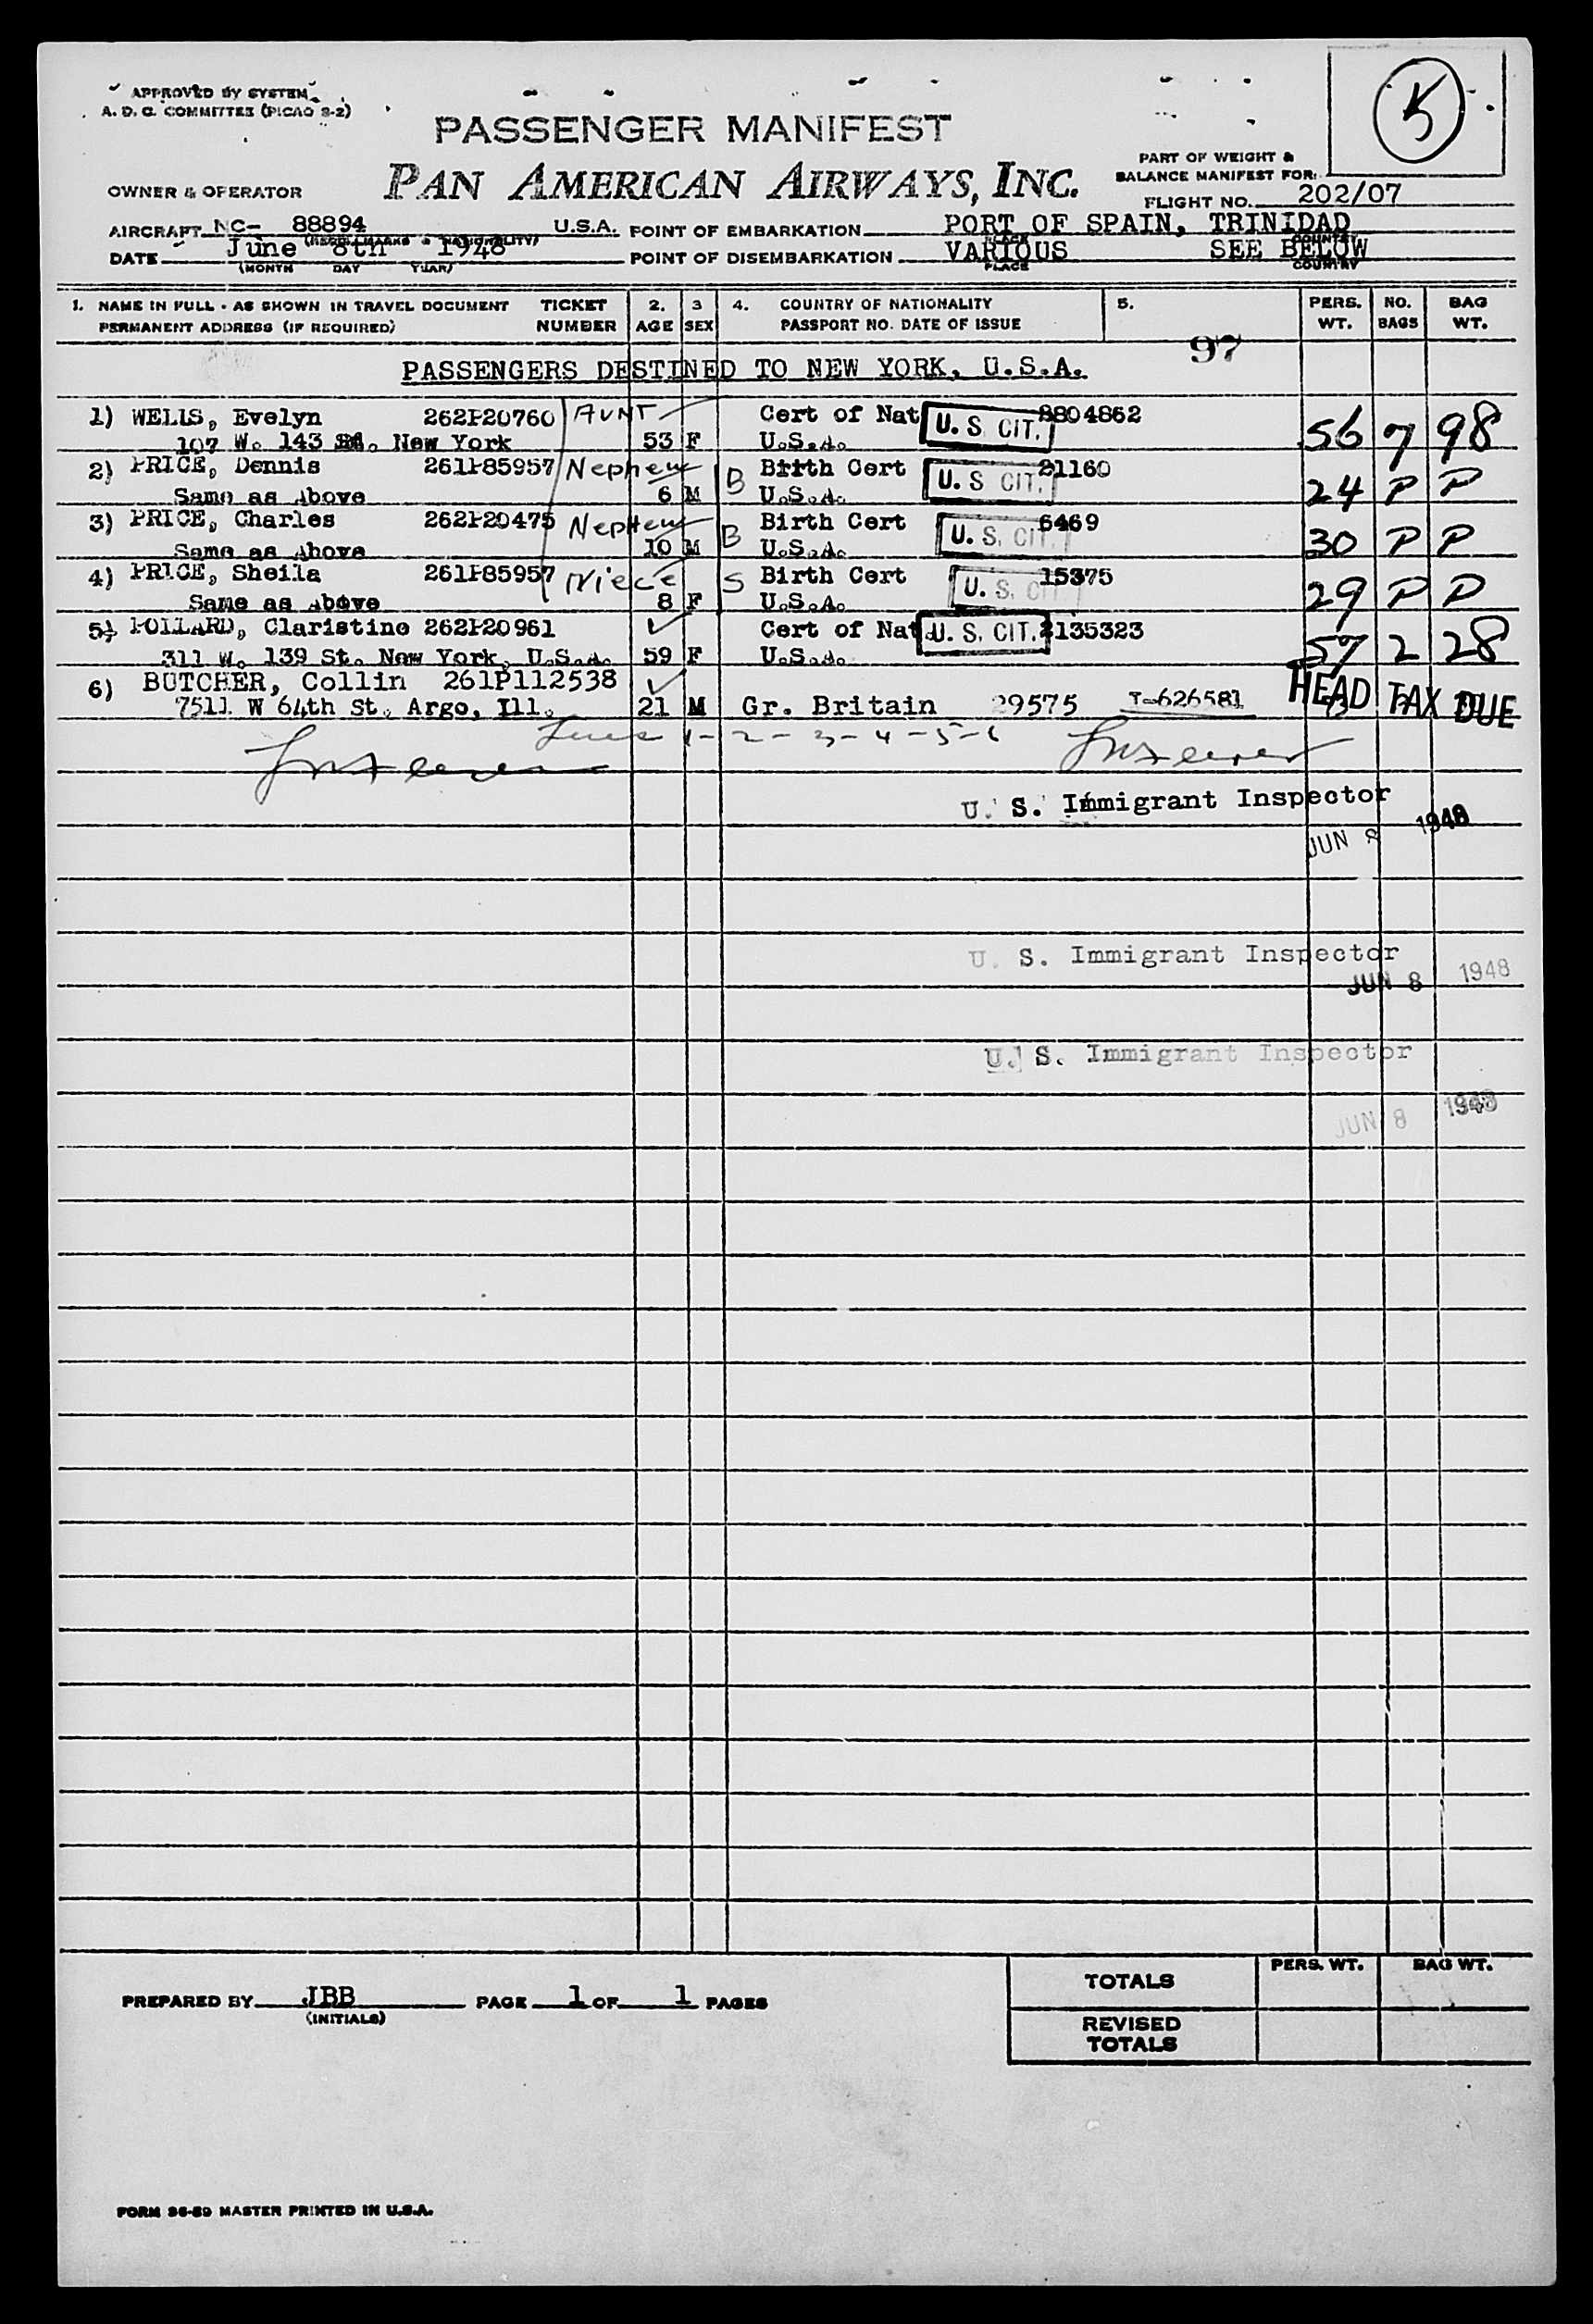 APPROVED BY SYSTEM
A. D. C. COMMITTEE (PICAO S-2)
5
PASSENGER MANIFEST
PAN AMERICAN AIRWAYS, INC.
OWNER & OPERATOR
PART OF WEIGHT &
BALANCE MANIFEST FOR:
FLIGHT NO. 202/07
AIRCRAFT NC- 88894 U.S.A. POINT OF EMBARKATION PORT OF SPAIN, TRINIDAD
DATE June 8th 1948 POINT OF DISEMBARKATION VARIOUS SEE BELOW
(MONTH DAY YEAR) PLACE COUNTRY
1. NAME IN FULL - AS SHOWN IN TRAVEL DOCUMENT TICKET 2. 3 4. COUNTRY OF NATIONALITY 5. PERS. NO. BAG
PERMANENT ADDRESS (IF REQUIRED) NUMBER AGE SEX PASSPORT NO. DATE OF ISSUE WT. BAGS WT.
97
PASSENGERS DESTINED TO NEW YORK, U.S.A.
1) WELLS, Evelyn 262P20760 AUNT Cert of Nat U. S. CIT. 8804862
107 W. 143 New York 53 F U.S.A. 56 7 98
2) PRICE, Dennis 261P85957 Nephew B Birth Cert U. S. CIT. 21160
Same as Above 6 M U.S.A. 24 P P
3) PRICE, Charles 262P20475 Nephew B Birth Cert U. S. CIT. 6469
Same as Above 10 M U.S.A. 30 P P
4) PRICE, Sheila 261P85957 Niece S Birth Cert U. S. 15375
Same as Above 8 F U.S.A. 29 P P
5) POLLARD, Claristine 262P20961 Cert of Nat U. S. CIT. 2135323
311 W. 139 St. New York, U.S.A. 59 F U.S.A. 57 2 28
6) BUTCHER, Collin 261P112538
7511 W 64th St. Argo, Ill. 21 M Gr. Britain 29575 I-626581 HEAD TAX DUE
Lines 1-2-3-4-5-6
U. S. Immigrant Inspector
JUN 8 1948
U. S. Immigrant Inspector
JUN 8 1948
U. S. Immigrant Inspector
JUN 8 1948
PERS. WT. BAG WT.
TOTALS
PREPARED BY JBB PAGE 1 OF 1 PAGES
(INITIALS)
REVISED
TOTALS
FORM 36-59 MASTER PRINTED IN U.S.A.